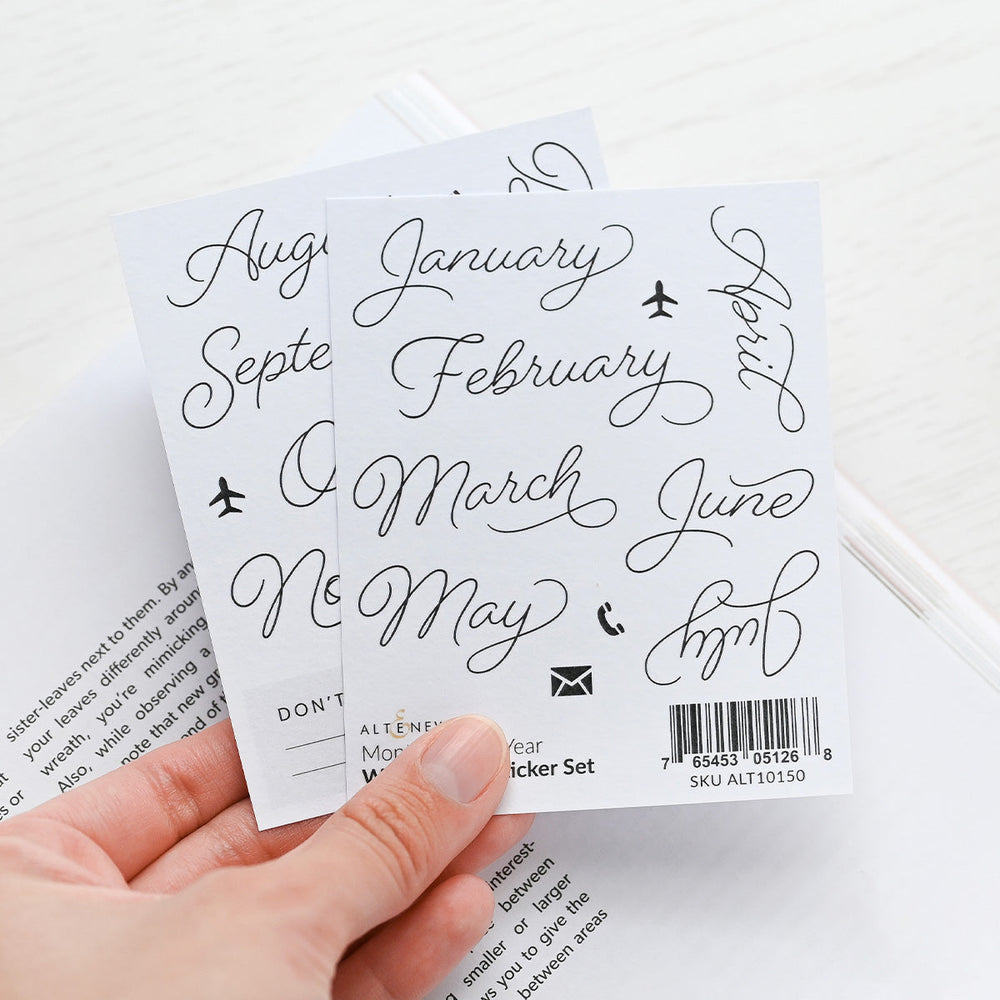 January
February
March
May
April
June
July
ALTENEW
Mon Year
W icker Set
7 65453 05126 8
SKU ALT10150
Augu
Septe
O
No
DON'T
sister-leaves next to them. By an
your leaves differently aroun
wreath, you're mimicking
Also, while observing a
note that new gr
end of t
s or
interest-
between
smaller or larger
ws you to give the
between areas